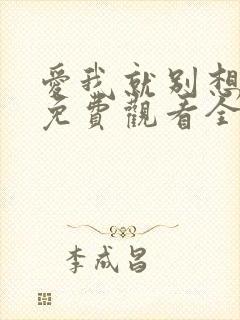 愛我就別想
免費觀看全
李成昌